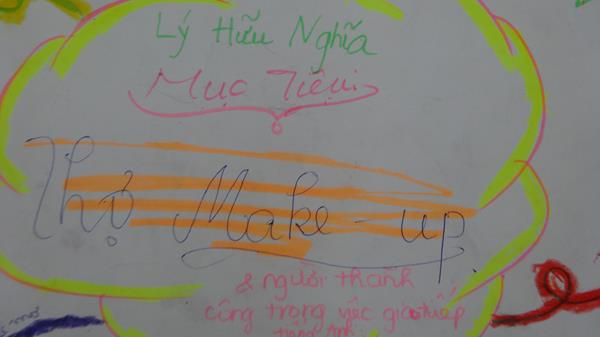 Lý Hữu Nghĩa
Mục Tiêu:
Thợ Make-up
& người thành
công trong việc giao tiếp
tiếng Anh